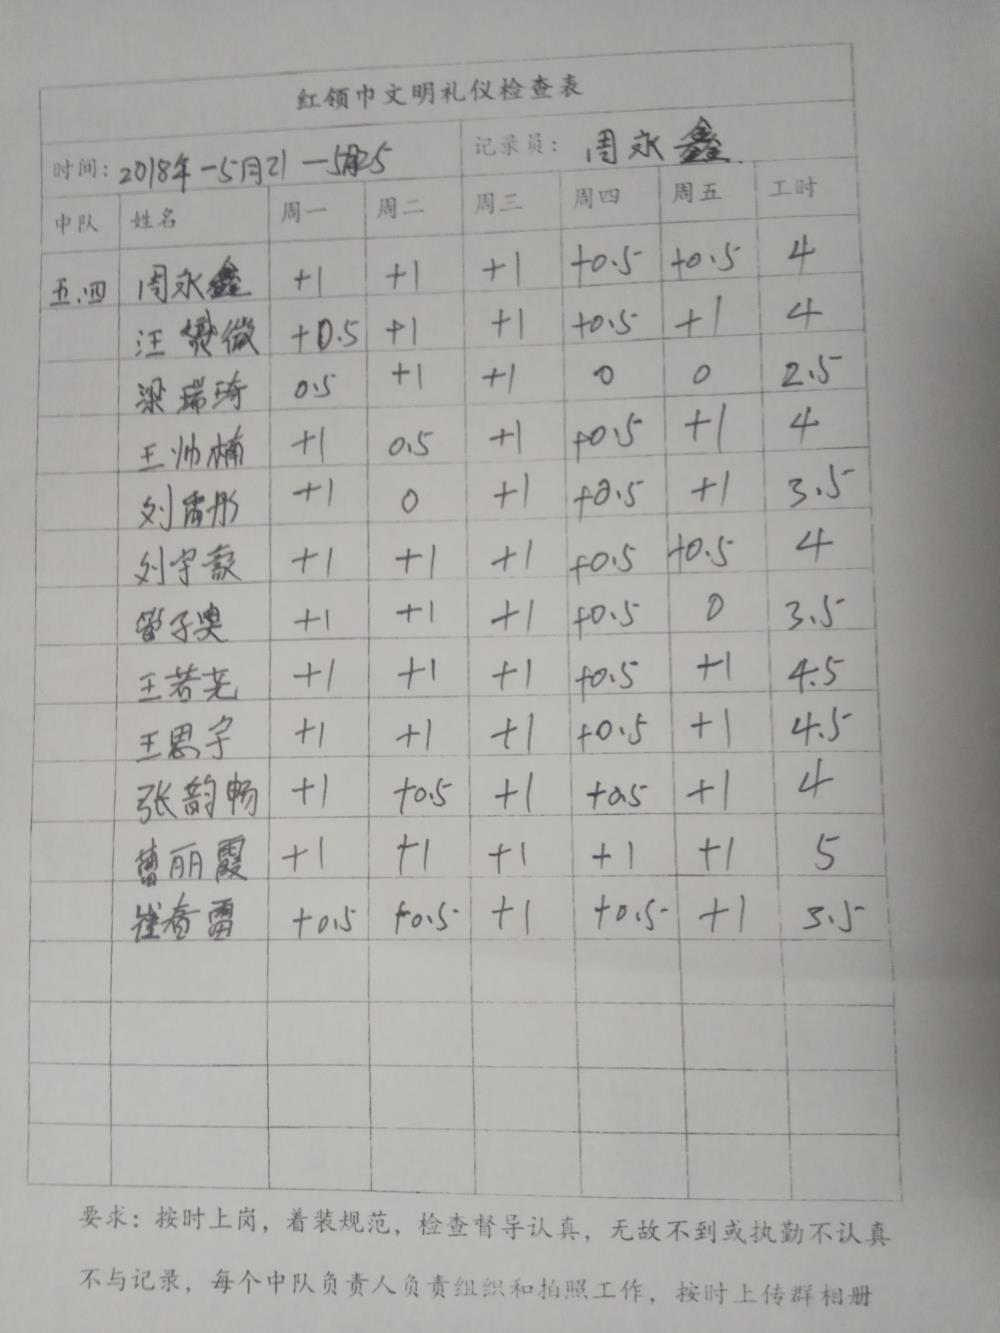 红领巾文明礼仪检查表
时间：2018年-5月21-5月25 记录员：周永鑫
中队 姓名 周一 周二 周三 周四 周五 工时
五.四 周永鑫 +1 +1 +1 +0.5 +0.5 4
汪微 +0.5 +1 +1 +0.5 +1 4
梁瑞琦 0.5 +1 +1 0 0 2.5
王帅楠 +1 0.5 +1 +0.5 +1 4
刘雨彤 +1 0 +1 +0.5 +1 3.5
刘宇豪 +1 +1 +1 +0.5 +0.5 4
管子奥 +1 +1 +1 +0.5 0 3.5
王若芜 +1 +1 +1 +0.5 +1 4.5
王思宇 +1 +1 +1 +0.5 +1 4.5
张韵畅 +1 +0.5 +1 +0.5 +1 4
丽霞 +1 +1 +1 +1 +1 5
崔春雷 +0.5 +0.5 +1 +0.5 +1 3.5
要求：按时上岗，着装规范，检查督导认真，无故不到或执勤不认真
不与记录，每个中队负责人负责组织和拍照工作，按时上传群相册